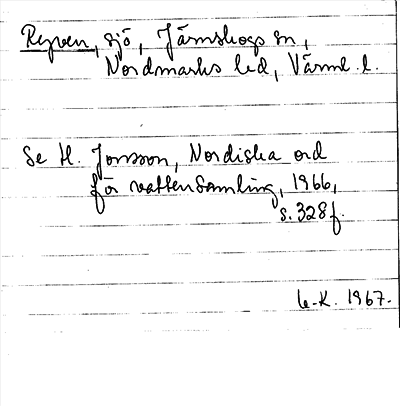 Ryven, sjö, Järnskogs sn,
Nordmarks hd, Värml. l.
Se H. Jonsson, Nordiska ord
för vattensamling, 1966,
s. 328 f.
L-K. 1967.